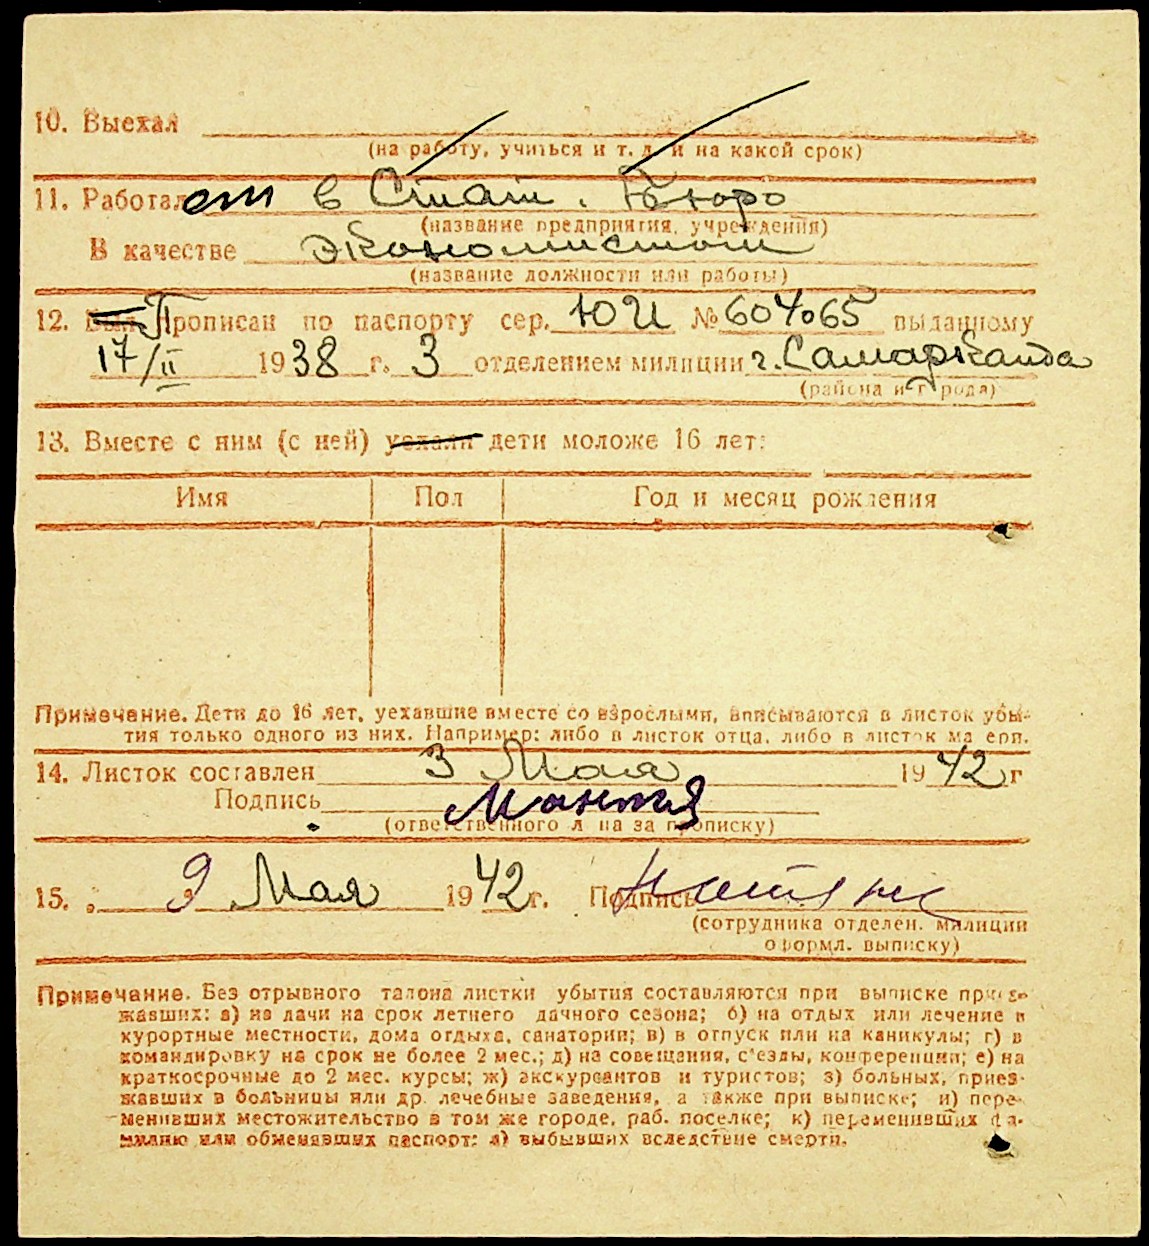 10. Выехал
(на работу, учиться и т. д. и на какой срок)
11. Работает в Стат. Бюро
(название предприятия, учреждения)
В качестве экономистом
(название должности или работы)
12. Был Прописан по паспорту сер. ЮИ № 604065 выданному
17/II 1938 г. 3 отделением милиции г. Самарканда
(района и города)
13. Вместе с ним (с ней) уехали дети моложе 16 лет:
Имя Пол Год и месяц рождения
Примечание. Дети до 16 лет, уехавшие вместе со взрослыми, вписываются в листок убы-
тия только одного из них. Например: либо в листок отца, либо в листок матери.
14. Листок составлен 3 Мая 1942 г
Подпись
(ответственного лица за прописку)
15. 9 Мая 1942 г. Подпись
(сотрудника отделен. милиции
оформл. выписку)
Примечание. Без отрывного талона листки убытия составляются при выписке приез-
жавших: а) на дачи на срок летнего дачного сезона; б) на отдых или лечение в
курортные местности, дома отдыха, санатории; в) в отпуск или на каникулы; г) в
командировку на срок не более 2 мес.; д) на совещания, с'езды, конференции; е) на
краткосрочные до 2 мес. курсы; ж) экскурсантов и туристов; з) больных, приез-
жавших в больницы или др. лечебные заведения, а также при выписке; и) пере-
менивших местожительство в том же городе, раб. поселке; к) переменивших фа-
милию или обменявших паспорт; л) выбывших вследствие смерти.